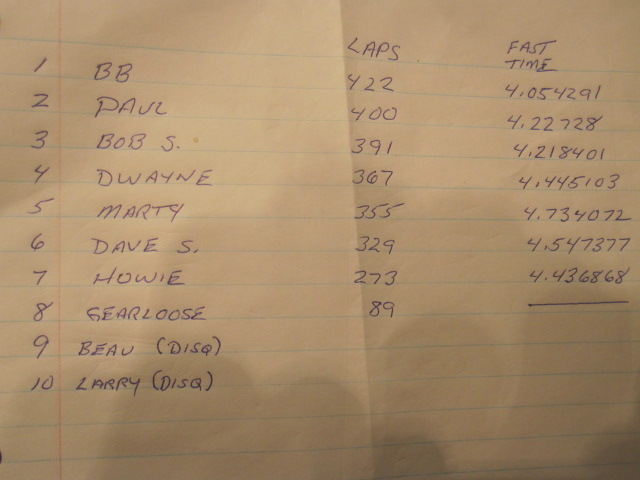 LAPS FAST TIME
1 BB 422 4.054291
2 PAUL 400 4.22728
3 BOB S. 391 4.218401
4 DWAYNE 367 4.445103
5 MARTY 355 4.734072
6 DAVE S. 329 4.547377
7 HOWIE 273 4.436868
8 GEARLOOSE 89
9 BEAU (DISQ)
10 LARRY (DISQ)